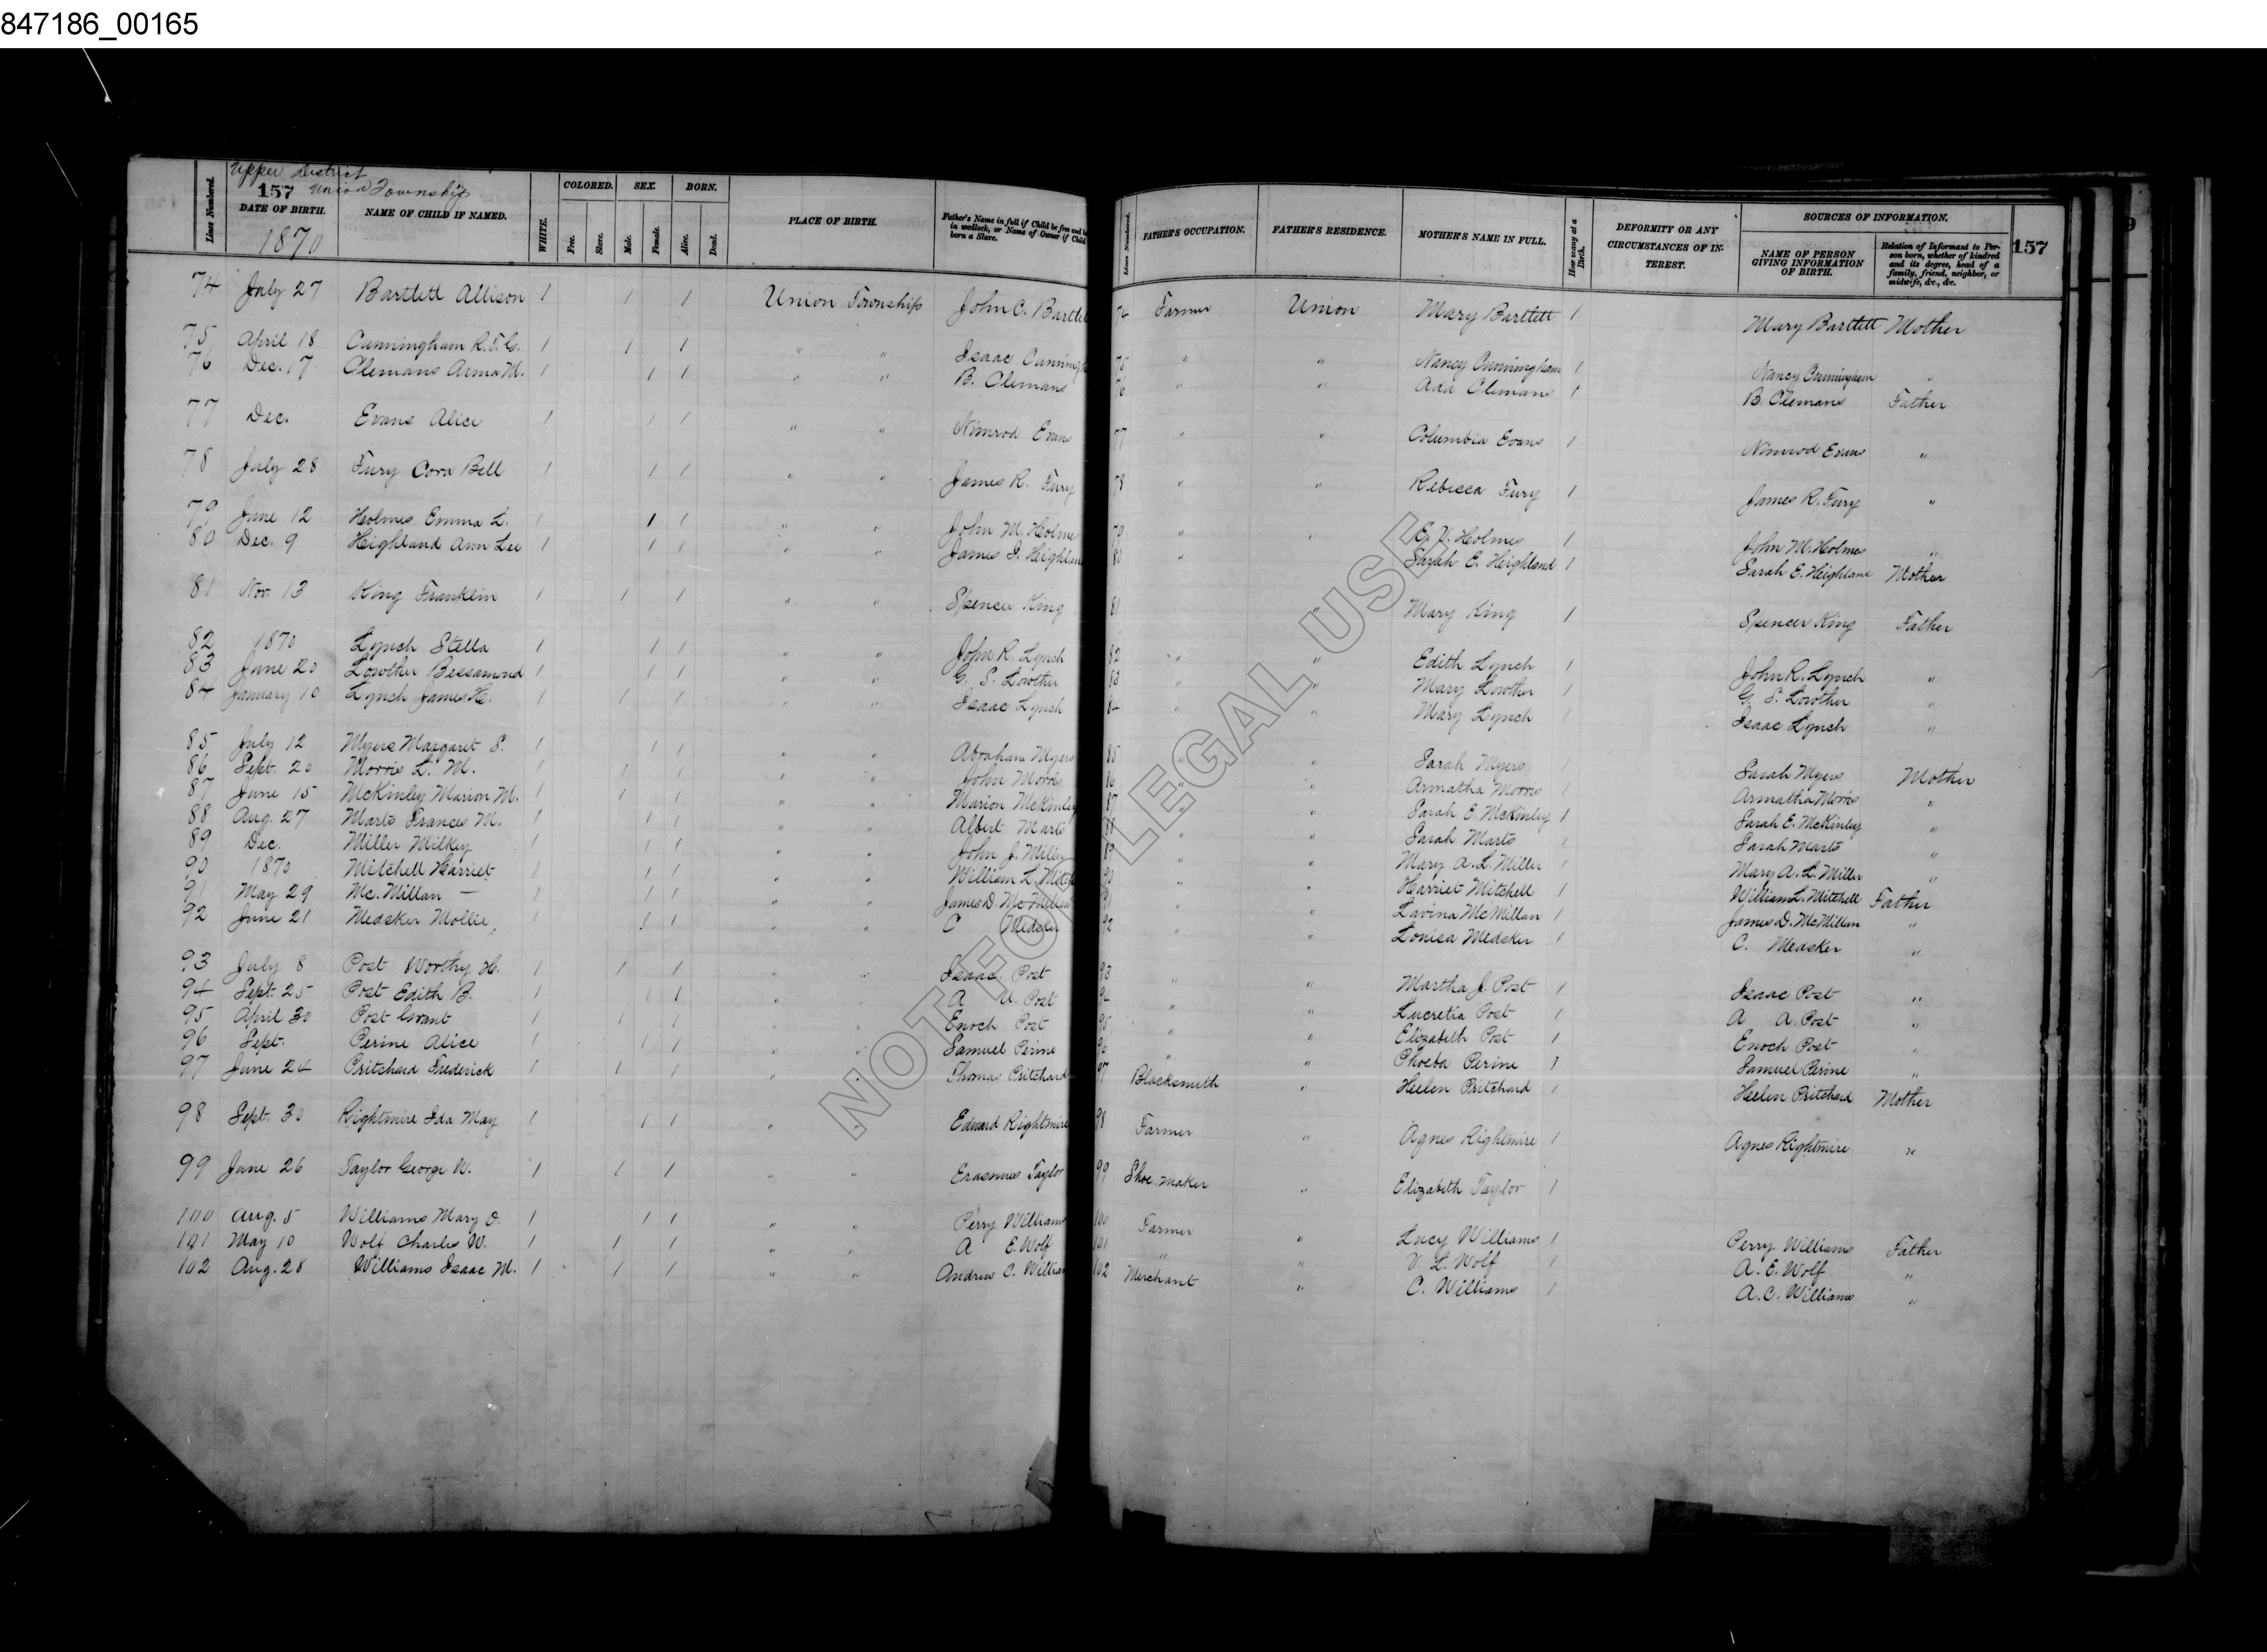 847186_00165
Upper District
157 Union Township
Lines Numbered. DATE OF BIRTH. NAME OF CHILD IF NAMED. WHITE. COLORED. Free. Slave. SEX. Male. Female. BORN. Alive. Dead. PLACE OF BIRTH. Father's Name in full if Child be free and in wedlock, or Name of Owner if Child born a Slave. Lines Numbered. FATHER'S OCCUPATION. FATHER'S RESIDENCE. MOTHER'S NAME IN FULL. How many at a Birth. DEFORMITY OR ANY CIRCUMSTANCES OF INTEREST. SOURCES OF INFORMATION. NAME OF PERSON GIVING INFORMATION OF BIRTH. Relation of Informant to Person born, whether of kindred and its degree, head of a family, friend, neighbor, or midwife, &c., &c. 157
1870
74 July 27 Bartlett Allison 1 1 1 Union Township John C. Bartle 74 Farmer Union Mary Bartlett 1 Mary Bartlett Mother
75 April 18 Cunningham R. T. C. 1 1 1 " " Isaac Cunningh 75 " " Nancy Cunningham 1 Nancy Cunningham "
76 Dec. 17 Clemans Anna M. 1 1 1 " " B. Clemans 76 " " Ada Clemans 1 B. Clemans Father
77 Dec. Evans Alice 1 1 1 " " Nimrod Evans 77 " " Columbia Evans 1 Nimrod Evans "
78 July 28 Fury Cora Bell 1 1 1 " " James R. Fury 78 " " Rebecca Fury 1 James R. Fury "
79 June 12 Holmes Emma L. 1 1 1 " " John M. Holmes 79 " " E. V. Holmes 1 John M. Holmes "
80 Dec. 9 Heighland Ann Lee 1 1 1 " " James I. Heighlan 80 " Sarah E. Heighland 1 Sarah E. Heighland Mother
81 Nov. 13 King Franklin 1 1 1 " " Spencer King 81 " Mary King 1 Spencer King Father
82 1870 Lynch Stella 1 1 1 " " John R. Lynch 82 " " Edith Lynch 1 John R. Lynch "
83 June 20 Lowther Bessamond 1 1 1 " " G. S. Lowther 83 " " Mary Lowther 1 G. S. Lowther "
84 January 10 Lynch James H. 1 1 1 " " Isaac Lynch 84 " " Mary Lynch 1 Isaac Lynch "
85 July 12 Myers Margaret S. 1 1 1 " " Abraham Myers 85 " " Sarah Myers 1 Sarah Myers Mother
86 Sept. 20 Morris L. M. 1 1 1 " " John Morris 86 " " Armatha Morris 1 Armatha Morris "
87 June 15 McKinley Marion M. 1 1 1 " " Marion McKinley 87 " " Sarah E. McKinley 1 Sarah E. McKinley "
88 Aug. 27 Marts Frances M. 1 1 1 " " Albert Marts 88 " " Sarah Marts 1 Sarah Marts "
89 Dec. Miller Milkey 1 1 1 " " John J. Miller 89 " " Mary A. L. Miller 1 Mary A. L. Miller "
90 1870 Mitchell Harriet 1 1 1 " " William L. Mitch 90 " " Harriet Mitchell 1 William L. Mitchell Father
91 May 29 Mc. Millan — 1 1 1 " " James D. McMillan 91 " " Lavina McMillan 1 James D. McMillan "
92 June 21 Medsker Mollie, 1 1 1 " " C Medsker 92 " " Louisa Medsker 1 C. Medsker "
93 July 8 Post Worthy H. 1 1 1 " " Isaac Post 93 " " Martha J. Post 1 Isaac Post "
94 Sept. 25 Post Edith B. 1 1 1 " " A A. Post 94 " " Lucretia Post 1 A A. Post "
95 April 30 Post Grant 1 1 1 " " Enoch Post 95 " " Elizabeth Post 1 Enoch Post "
96 Sept. Perine Alice 1 1 1 " " Samuel Perine 96 " " Phoeba Perine 1 Samuel Perine "
97 June 24 Pritchard Frederick 1 1 1 " " Thomas Pritchard 97 Blacksmith " Heelen Pritchard 1 Heelen Pritchard Mother
98 Sept. 30 Rightmire Ida May 1 1 1 " " Edward Rightmire 98 Farmer " Agnes Rightmire 1 Agnes Rightmire "
99 June 26 Taylor George W. 1 1 1 " " Erasmus Taylor 99 Shoe maker " Elizabeth Taylor 1
100 Aug. 5 Williams Mary O. 1 1 1 " " Perry Williams 100 Farmer " Lucy Williams 1 Perry Williams Father
101 May 10 Wolf Charles W. 1 1 1 " " A E. Wolf 101 " " V. L. Wolf 1 A. E. Wolf "
102 Aug. 28 Williams Isaac M. 1 1 1 " " Andrew C. William 102 Merchant " C. Williams 1 A. C. Williams "
NOT FOR LEGAL USE